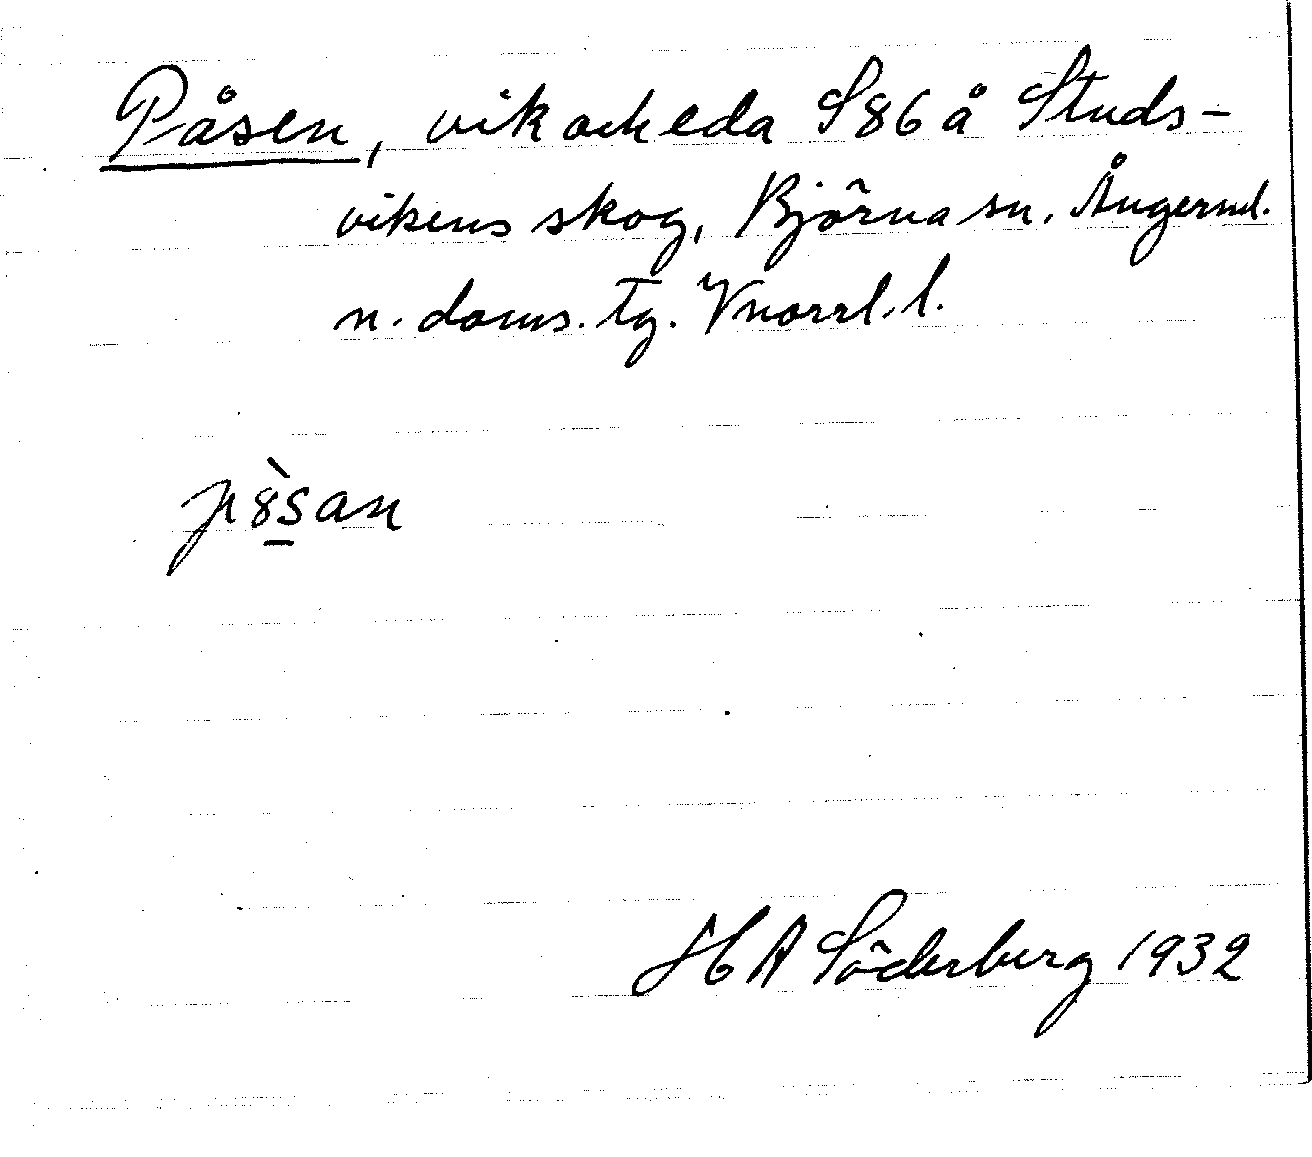 Påsen, vik och eda S86 å Studs-
vikens skog, Björna sn. Ångerml.
n. doms. tg. Vnorrl. l.
p8̀san
HA Söderberg 1932